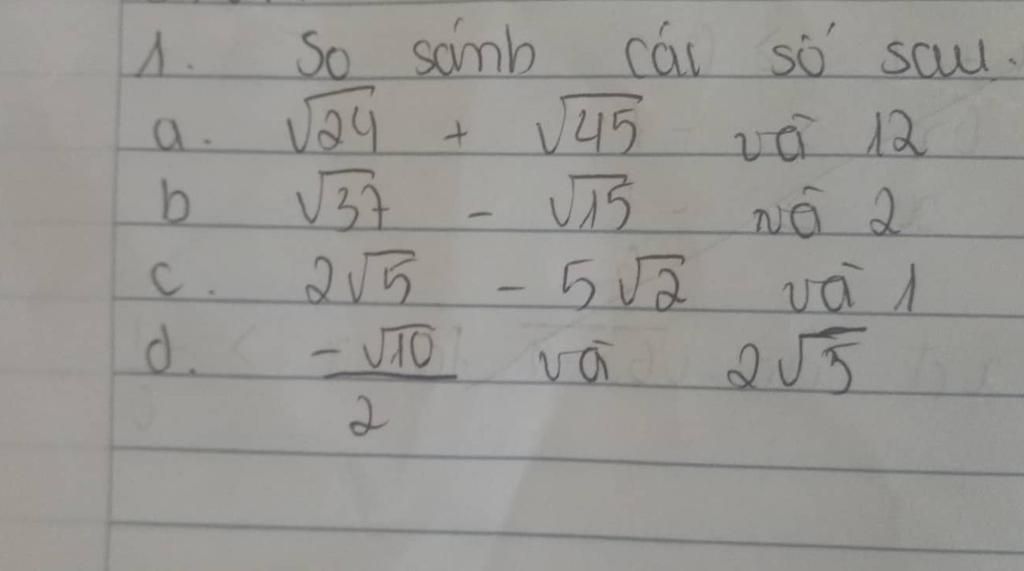 1. So sánh các số sau.
a. √24 + √45 và 12
b √37 - √15 và 2
c. 2√5 - 5√2 và 1
d. -√10/2 và 2√5